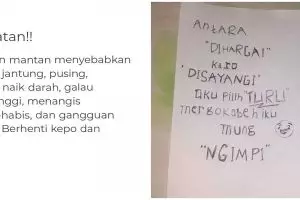 atan!!
n mantan menyebabkan
jantung, pusing,
naik darah, galau
nggi, menangis
-habis, dan gangguan
Berhenti kepo dan
ANTARA
"DIHARGAI"
KARO
"DISAYANGI"
AKU PiliH "TURU"
mergo kabeh iku
mung
"NGIMPI"